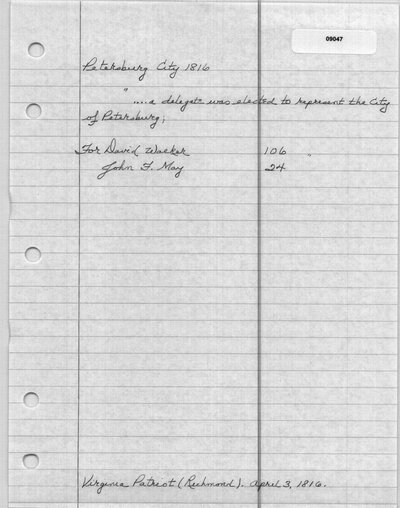 09047
Petersburg City 1816
" ....a delegate was elected to represent the City
of Petersburg;
For David Walker 106 "
John F. May 24
Virginia Patriot (Richmond). April 3, 1816.